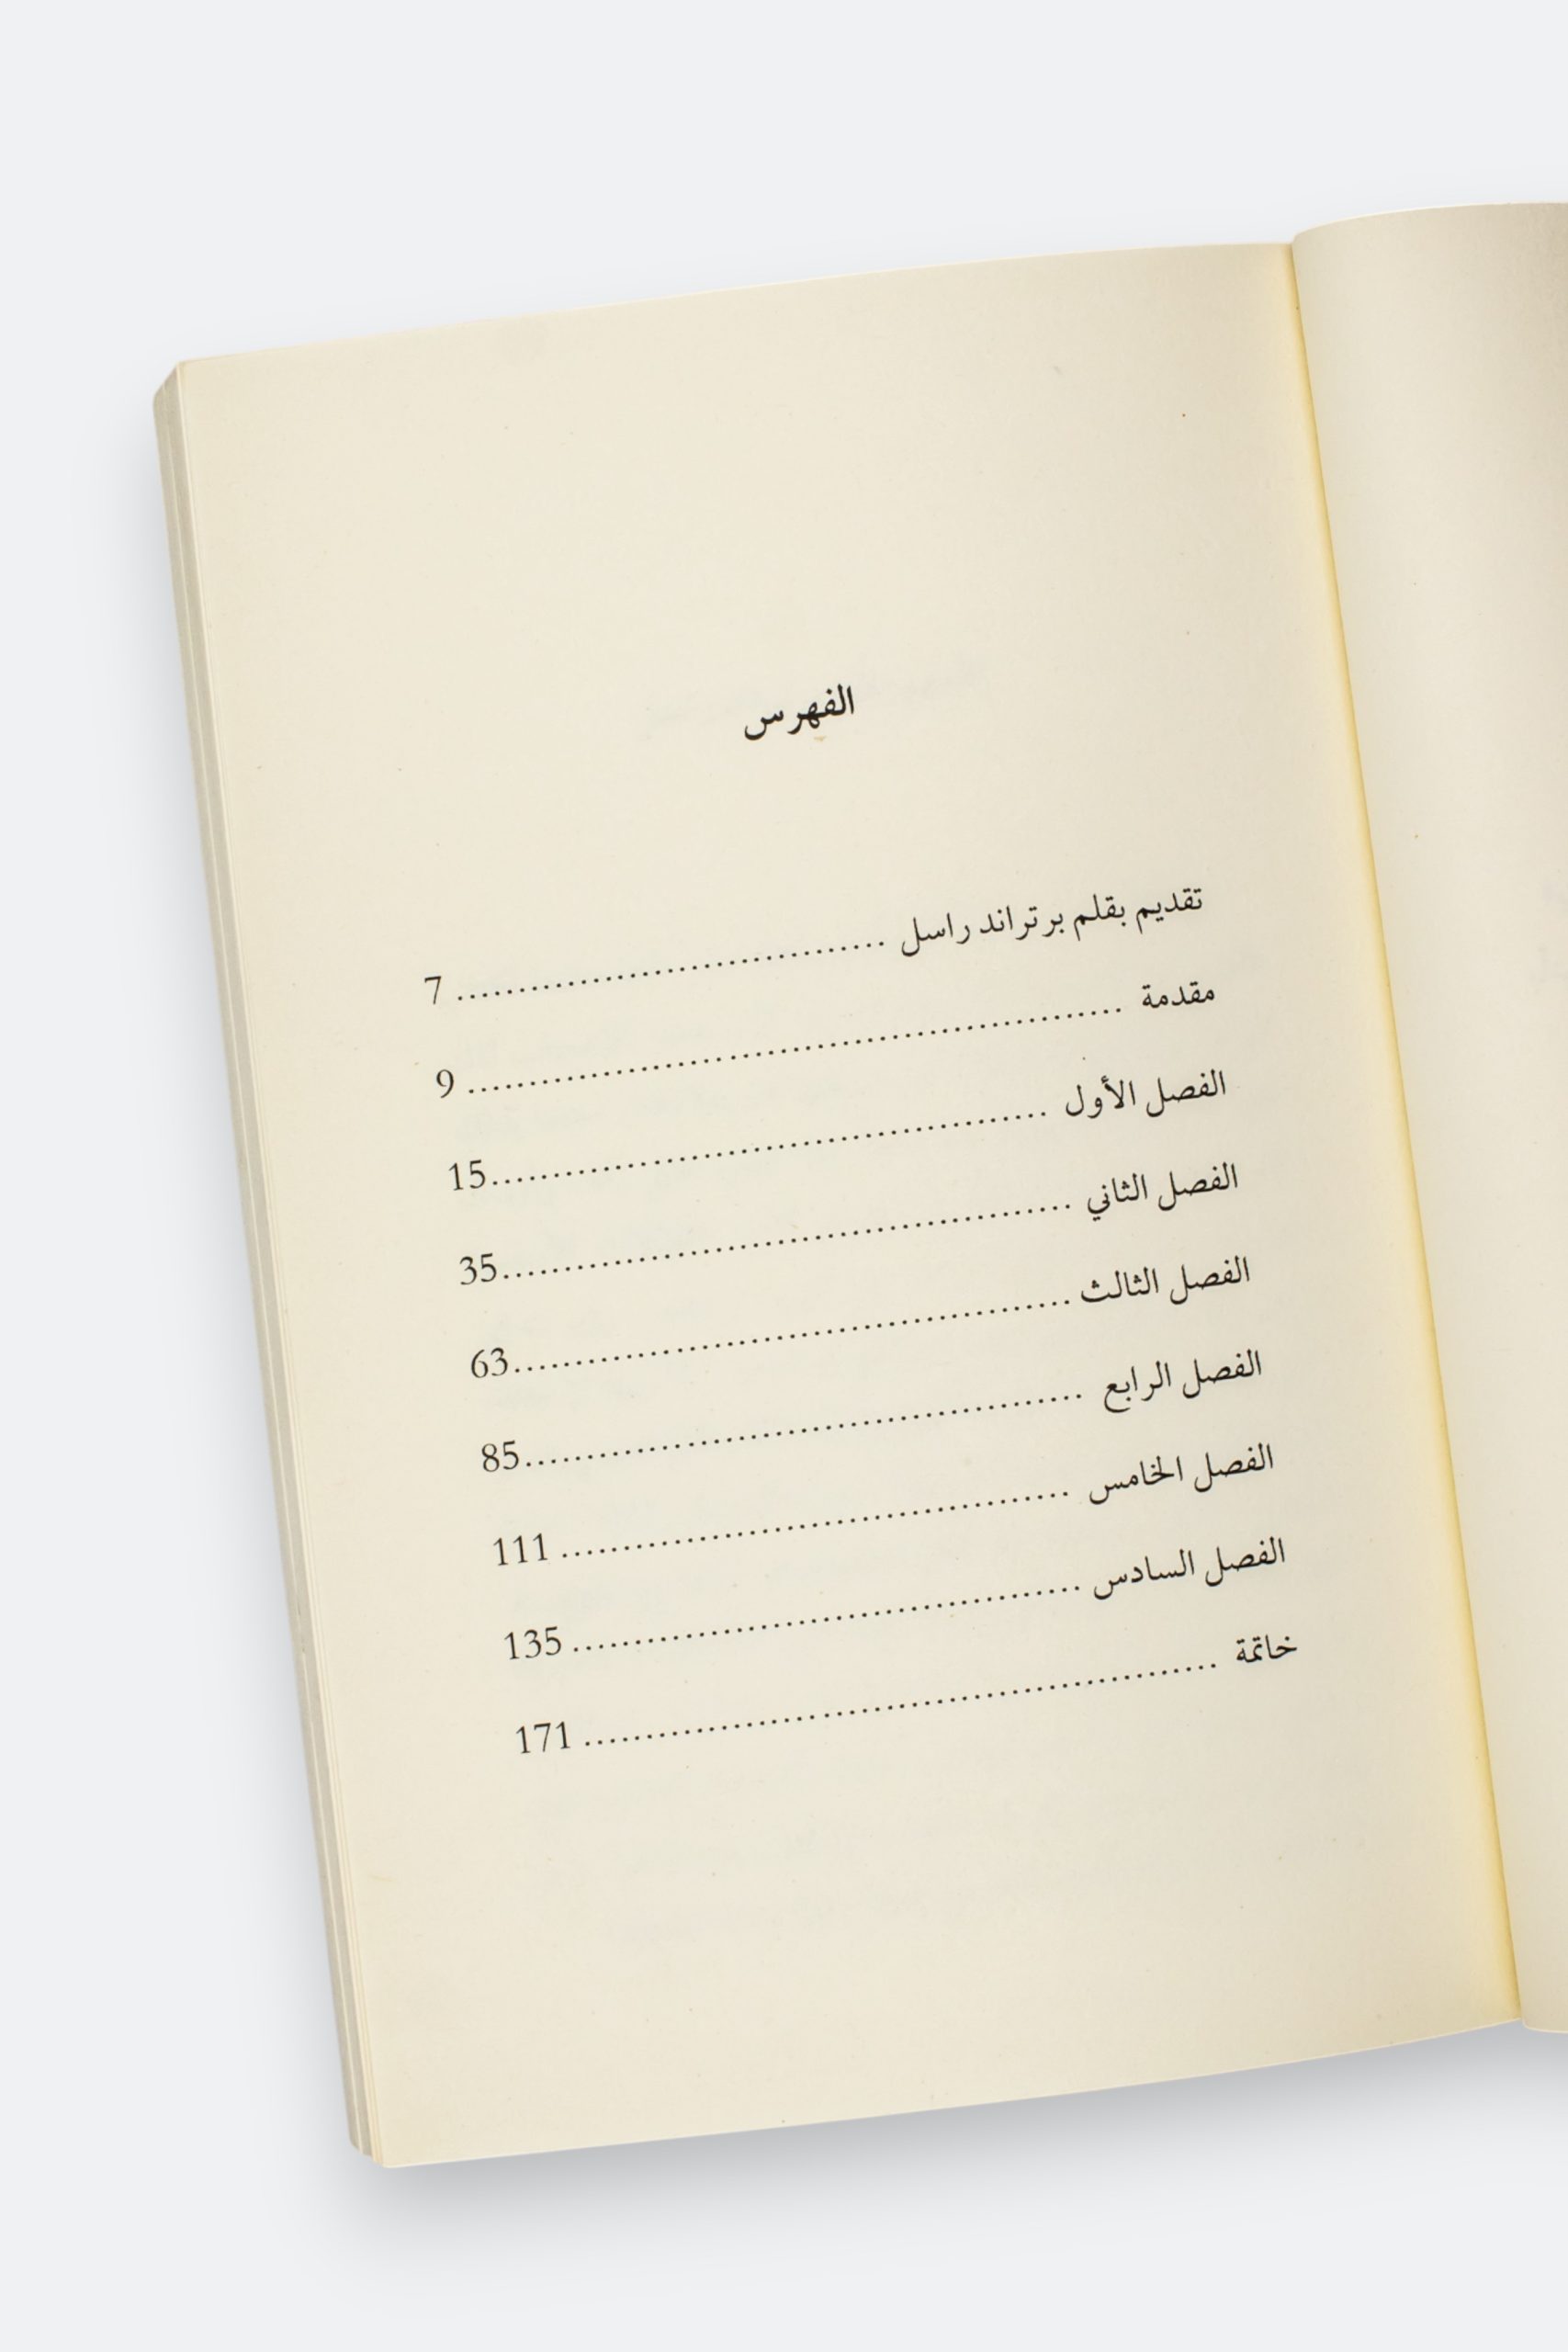 الفهرس
تقديم بقلم برتراند راسل ................................... 7
مقدمة ..................................................... 9
الفصل الأول .............................................15
الفصل الثاني ..............................................35
الفصل الثالث .............................................63
الفصل الرابع .............................................85
الفصل الخامس ......................................... 111
الفصل السادس ......................................... 135
خاتمة ................................................... 171